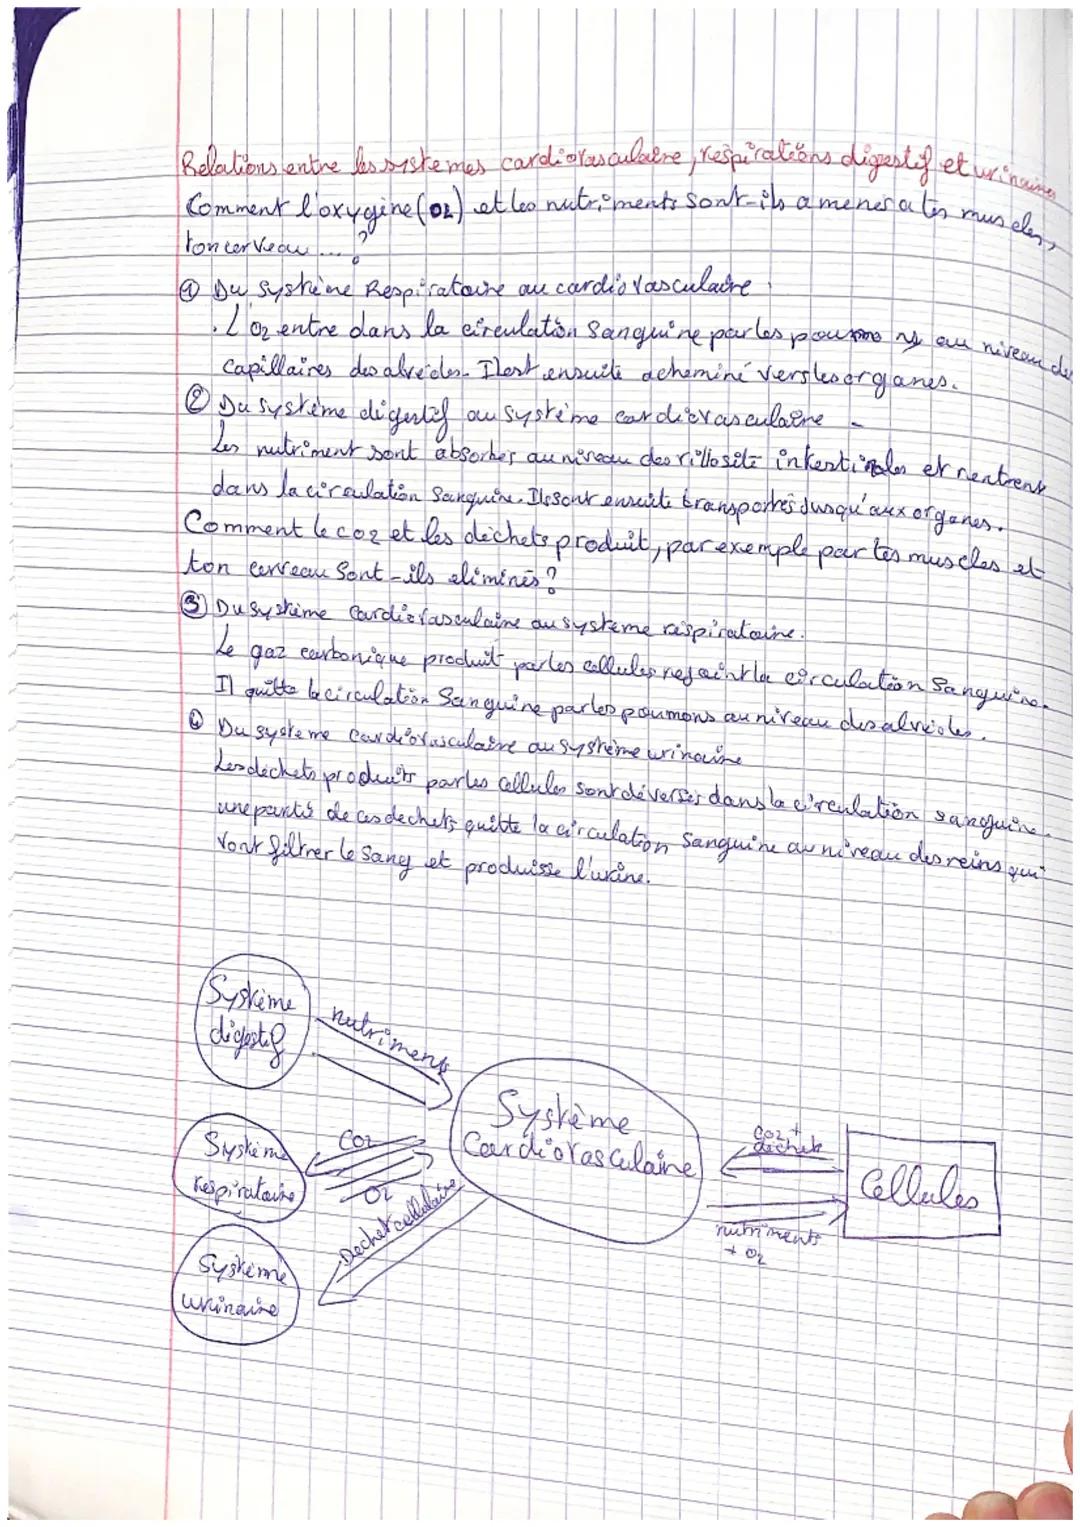 Relations entre les systemes cardiovasculaire, respirations digestif et urinaires
Comment l'oxygine (O2) et les nutriments sont-ils amener a tes muscles,
ton cerveau ... ?
① Du système Respirataire au cardiovasculaire
. L'O2 entre dans la circulation Sanguine par les poumons au niveau des
capillaires des alvéoles. Il est ensuite acheminé vers les organes.
② Du système digestif au système cardiovasculaire -
Les nutriment sont absorbés au niveau des villosité intestinales et rentrent
dans la circulation Sanguine. Ils sont ensuite transportés Jusqu'aux organes.
Comment le co2 et les déchets produit, par exemple par tes muscles et
ton cerveau Sont-ils eliminés ?
③ Du système Cardiovasculaire au systeme respirataire.
Le gaz carbonique produit par les cellules rejoint la circulation Sanguine.
Il quitte la circulation Sanguine par les poumons au niveau des alvéoles.
④ Du systeme Cardiovasculaire au système urinaire
Les déchets produits par les cellules sont déversés dans la circulation sanguine.
une partie de ces dechets quitte la circulation Sanguine au niveau des reins qui
vont filtrer le Sang et produisse l'urine.
Système
digestif
nutriments
Système
Cardiovasculaire
Système
respirataire
CO2
O2
Dechet cellulaire
Système
urinaire
CO2 +
déchets
Cellules
nutriments
+ O2